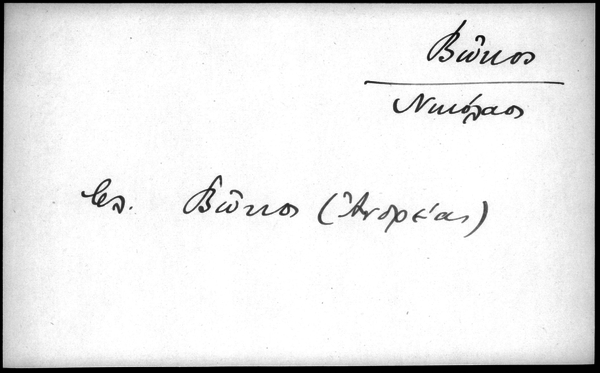 Βῶκος
Νικόλαος
βλ. Βῶκος (Ἀνδρέας)